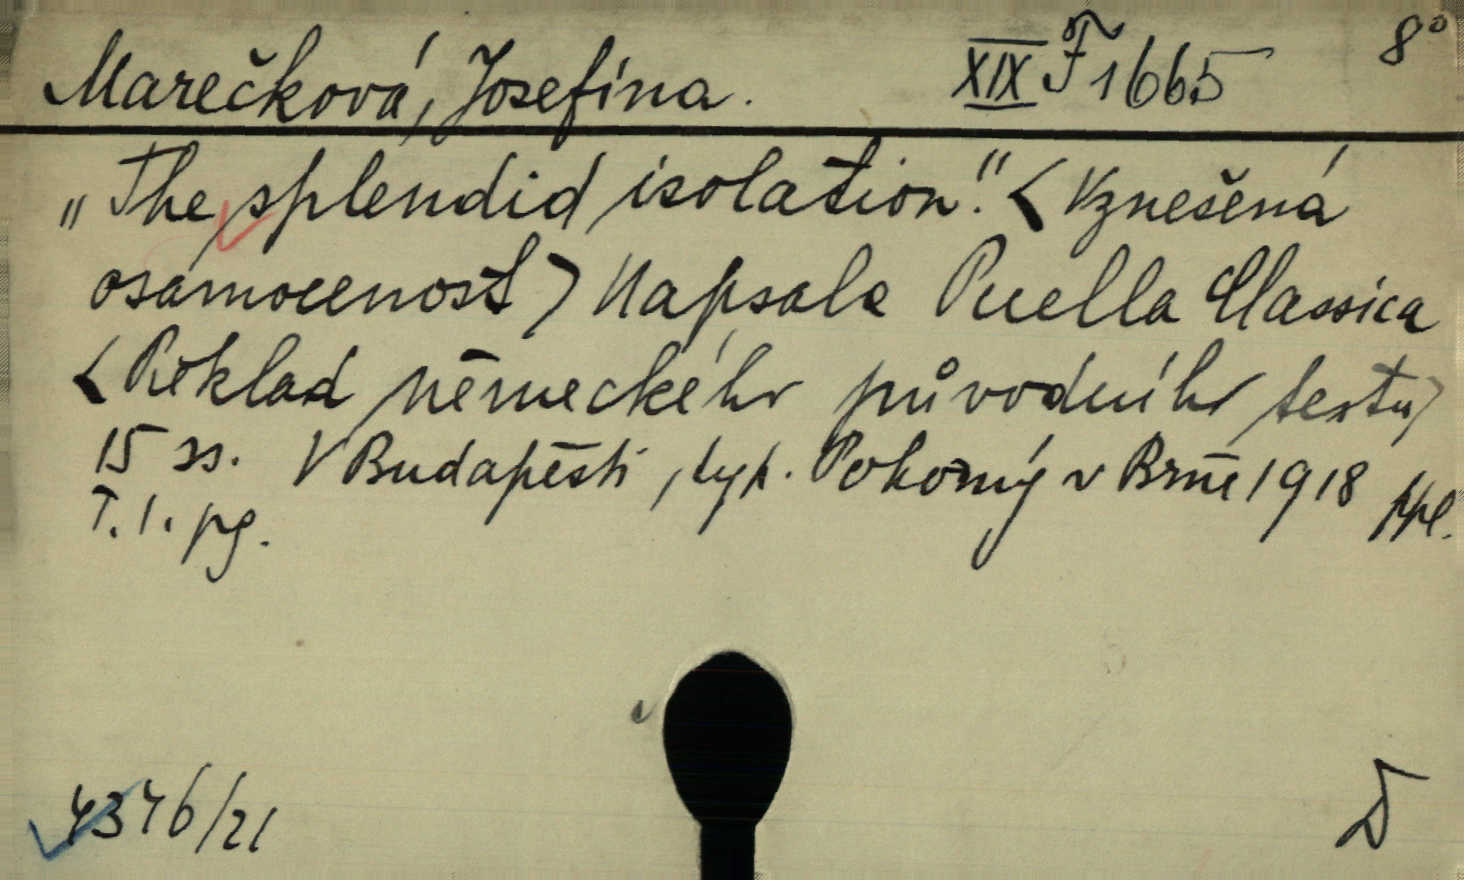 Marečková, Josefina. XIX F 1665 8°
„The splendid isolation." <Vznešená
osamocenost> Napsala Puella Classica
<Překlad německého původního textu>
15 ss. V Budapěšti, typ. Pokorný v Brně 1918 ppl.
T. 1. pg.
4376/21 D